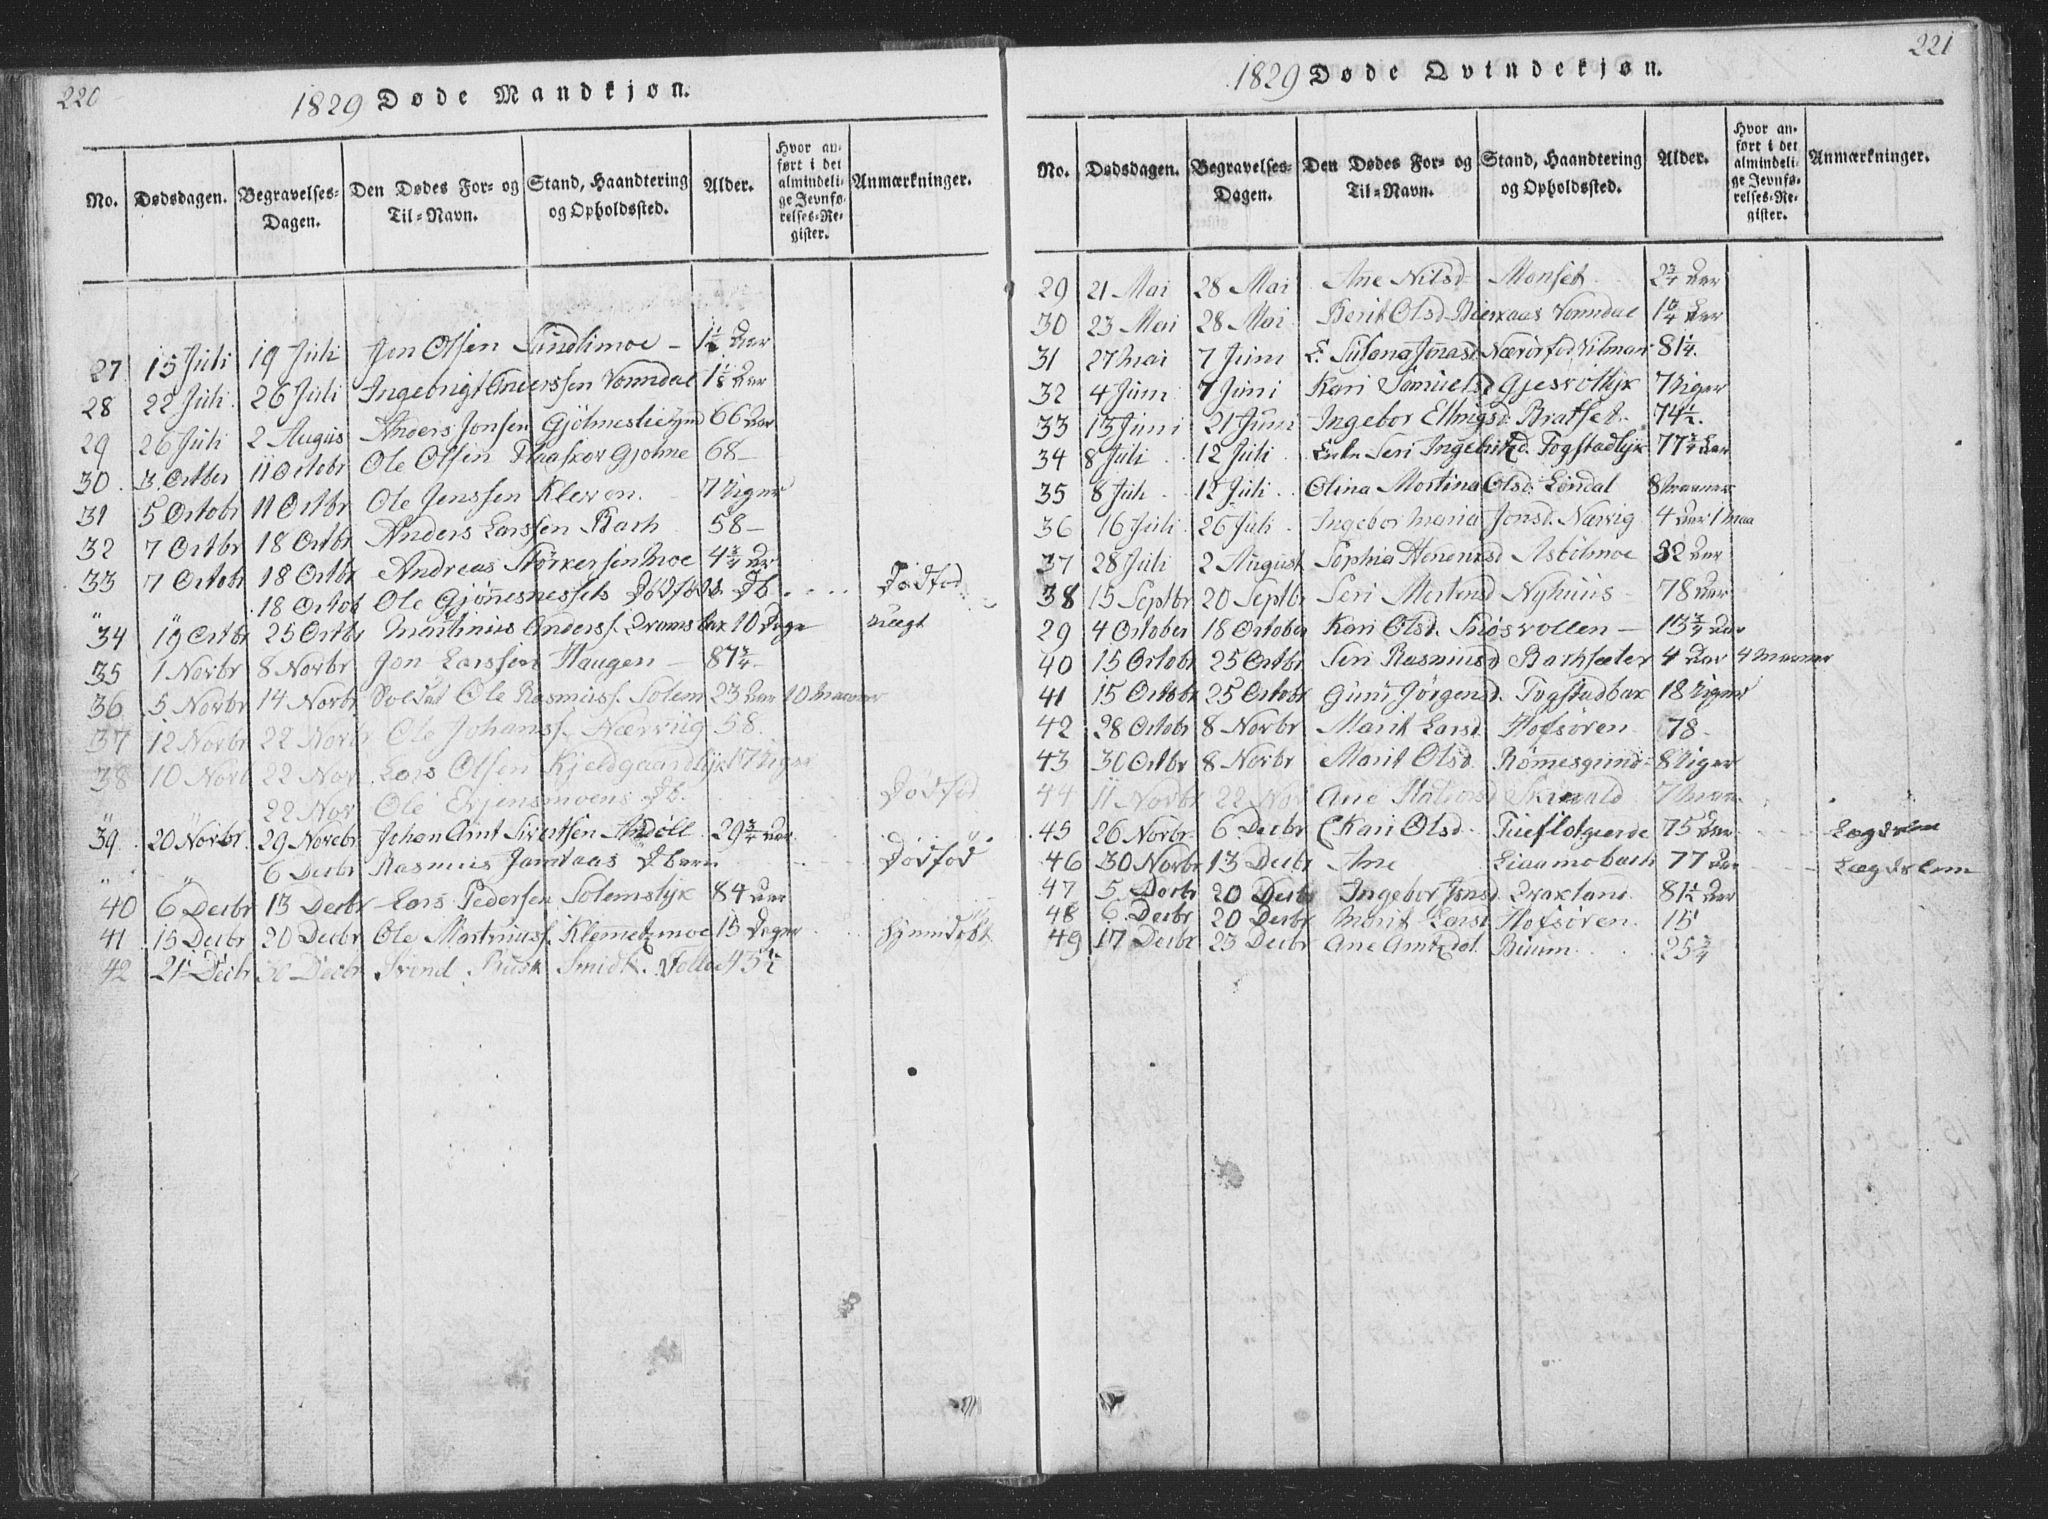 220
1829 Døde Mandkjøn.
No. Dødsdagen. Begravelses-Dagen. Den Dødes For- og Til-Navn. Stand, Haandtering og Opholdssted. Alder. Hvor anført i det almindelige Jevnførelses-Register. Anmærkninger.
27 15 Juli 19 Juli Jon Olsen Sundlimoe - Aar
28 22 Juli 26 Juli Ingebrigt Anderssen Vonndal 1 1/8 Aar
29 26 Juli 2 Augus Anders Jonsen 66 Aar
30 3 Octber 11 Octobr Ole Olsen 68 -
31 5 Octobr 11 Octbr Ole Jenssen Kleven. 7 Uger
32 7 Octbr 18 Octbr Anders Larssen Bach 58 -
33 7 Octobr 18 Octbr Andreas Størkersen Moe 4 3/4 Ar
" " 18 Octob Ole Gjønesnessets Dødfødt Db. Dødfød
34 19 Octbr 25 Octbr Martinus Anderss. 10 Dage
35 1 Novbr 8 Novbr Jon Larssen Haugen - 87 3/4
36 5 Novbr 14 Novbr Soldat Ole Rasmuss. Solem 23 Aar 10 Maaner
37 12 Novbr 22 Novbr Ole Johanss. Nærvig 58.
38 10 Novb 22 Nov Lars Olsen Kjeldgaardslyk 17 Uger
" " 22 Nov Ole Evjensmoens Db. Dødfød
39 20 Novbr 29 Novebr Johan Arnt Sivertsen Indøll 29 3/4 Aar
" " 6 Decbr Rasmus D barn Dødfød
40 6 Decbr 13 Decbr Lars Pedersen Solemslyk 84 Aar
41 15 Decbr 20 Decbr Ole Martinuss. Klemetzmoe 15 Dager Hjemdøbt
42 21 Decbr 30 Decbr Svend Busk Smidt. 43 1/2
221
1829 Døde Qvindekjøn.
No. Dødsdagen. Begravelses-Dagen. Den Dødes For- og Til-Navn. Stand, Haandtering og Opholdssted. Alder. Hvor anført i det almindelige Jevnførelses-Register. Anmærkninger.
29 21 Mai 28 Mai Ane Nilsd Monset 2 3/4 Aar
30 23 Mai 28 Mai Berit Olsd Vonndal Aar
31 27 Mai 7 Juni E. Jonasd. 81 1/4.
32 4 Juni 7 Juni Kari Samuelsd 7 Uger
33 13 Juni 21 Juni Ingebor Ellingsd Bratset. 74 1/2.
34 8 Juli 12 Juli Enke Seri Ingebritzd. Togstadlyk 77 3/4 Aar
35 8 Juli 12 Juli Olina Martina Olsd. Londal 8 Maaner
36 16 Juli 26 Juli Ingebor Maria Jonsd. Nærvig 4 Aar 1 Maa
37 28 Juli 2 August Sophia Asbölmoe 32 Aar
38 15 Septbr 20 Septbr Seri Mortensd Nyhuus - 78 Aar
29 4 October 18 October Kari Olsd. Snøsvollen - 13 3/4 Aar
40 15 Octobr 25 Octbr Seri Rasmusd Bachsæter 4 Aar 4 Maaner
41 15 Octobr 25 Octobr Guru Jørgensd. Togstadbak 18 Uger
42 28 Octobr 8 Novbr Marit Larsd. Hofsøren 78 -
43 30 Octbr 8 Novbr Marit Olsd. Rømmesgrind 8 Uger
44 11 Novbr 22 Nov Ane Skrivald 7 Maan
45 26 Novbr 6 Decbr E Kari Olsd. 75 Aar Lægdslem
46 30 Novbr 13 Decbr Ane Liaamobach 77 Aar Lægdslem
47 5. Decbr 20 Decbr Ingebor Jonsd 81 1/2 Aar
48 6. Decbr 20 Decbr Marit Larsd Hofsøren. 15
49 17 Decbr 23 Decbr Ane Arntzdat. Biuum 25 3/4